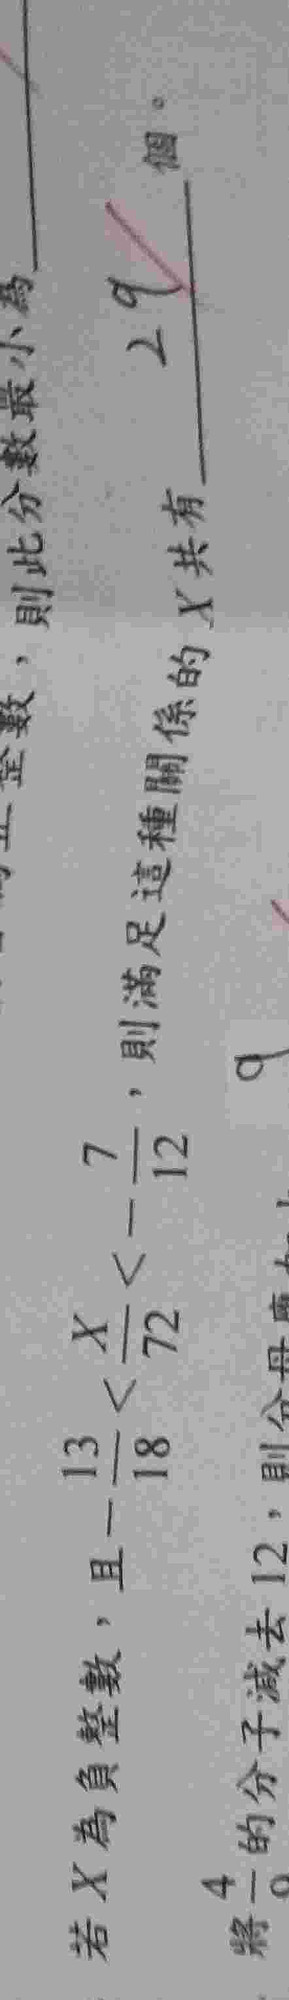 整數，則此分數最小為
若 X 為負整數，且 -13/18 < X/72 < -7/12，則滿足這種關係的 X 共有 29 個。
將 4/9 的分子減去 12，則分母應
9